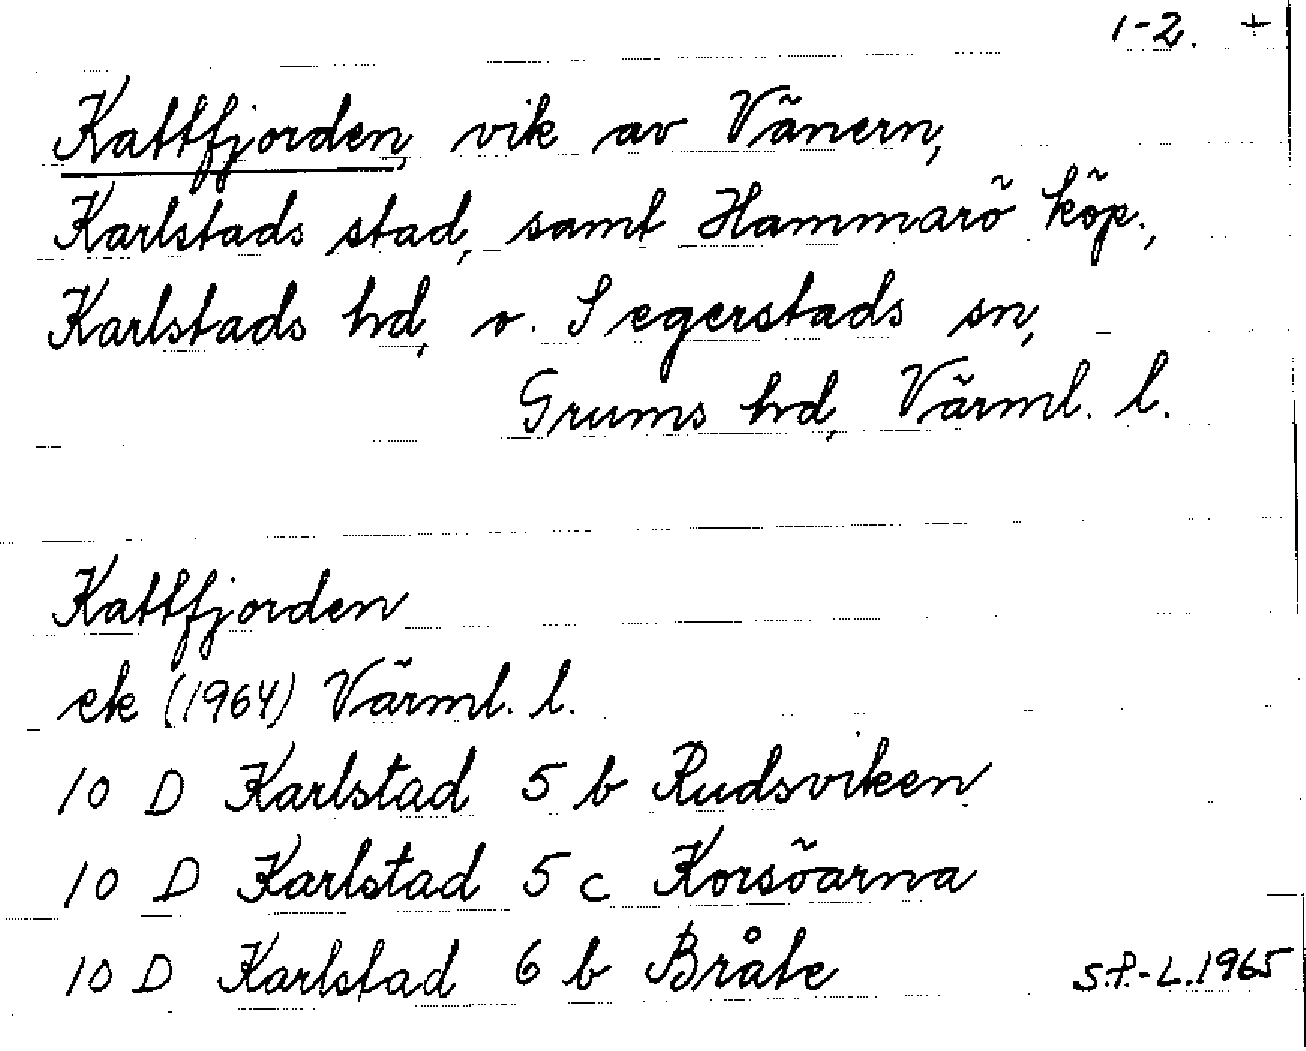 1-2. +
Kattfjorden, vik av Vänern,
Karlstads stad, samt Hammarö köp.,
Karlstads hd, o. Segerstads sn,
Grums hd, Värml. l.
Kattfjorden
ek (1964) Värml. l.
10 D Karlstad 5 b Rudsviken
10 D Karlstad 5 c Korsöarna
10 D Karlstad 6 b Bråte
S.P.-L. 1965